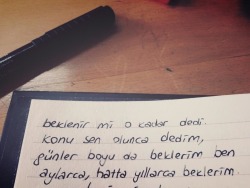 beklenir mi o kadar dedi.
konu sen olunca dedim,
günler boyu da beklerim ben
aylarca, hatta yıllarca beklerim